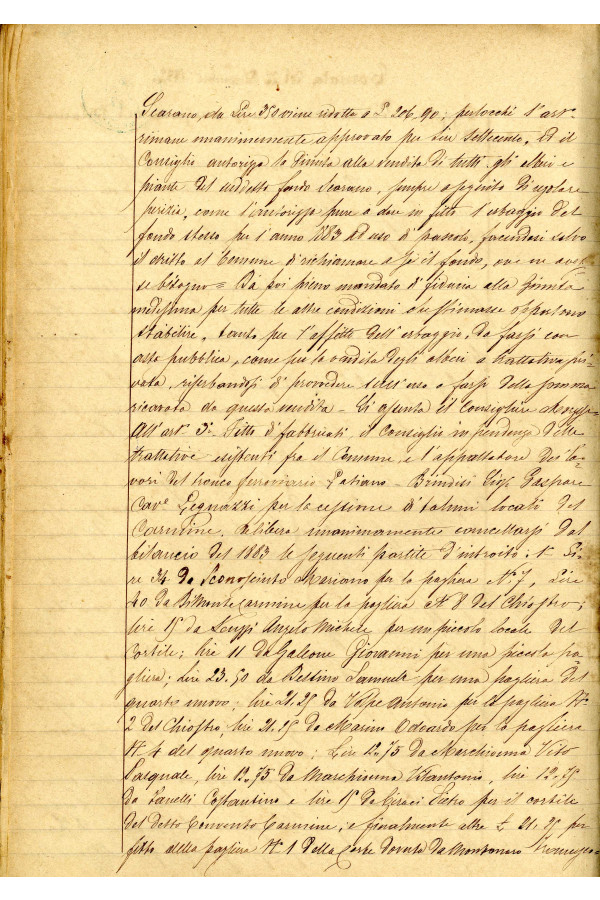 Scarano, da Lire 350 viene ridotto a £. 206,90; perlocchè l'art.
rimane unanimemente approvato per Lire settecento. Ed il
Consiglio autorizza la Giunta alla vendita di tutti gli alberi e
piante del suddetto fondo Scarano, sempre a seguito di regolare
perizia, come l'autorizza pure a dare in fitto l'erbaggio del
fondo stesso per l'anno 1883 ad uso di pascolo, facendosi salvo
il dritto al Comune di richiamare a se il fondo, ove ne avesse
bisogno = Dà poi pieno mandato di fiducia alla Giunta
medesima per tutte le altre condizioni che stimasse opportuno
stabilire, tanto per l'affitto dell'erbaggio, da farsi con
asta pubblica, come per la vendita degli alberi a trattativa pri-
vata, riserbandosi di provvedere sull'uso a farsi della somma
ricavata da questa vendita - Si assenta il Consigliere
All'art. 3° Fitto di fabbricati, il Consiglio in pendenza delle
trattative esistenti fra il Comune e l'appaltatore dei la-
vori del tronco ferroviario Latiano - Brindisi Sigr. Gaspare
Cav.e Legnazzi per la cessione di taluni locali del
Carmine, delibera unanimamente cancellarsi dal
bilancio del 1883 le seguenti partite d'introito: 1° Li-
re 34 da Sconosciuto Mariano per la pagliera N° 7, Lire
40 da Bilmonte Carmine per la pagliera N° 8 del Chiostro;
lire 15 da Angelo Michele per un piccolo locale del
Cortile; lire 11 da Galeone Giovanni per una piccola pa-
gliera; Lire 23.50 da Bellino Samuele per una pagliera del
quarto nuovo; lire 21.25 da Volpe Antonio per la pagliera N°
2 del Chiostro, lire 21.25 da Marino Odoardo per la pagliera
N° 4 del quarto nuovo; Lire 12.75 da Marchionna Vito
Pasquale, lire 12.75 da Marchionna Vitantonio, lire 12.75
da Zanelli Costantino e lire 15 da Geraci Pietro per il cortile
del detto Convento Carmine; e finalmente altre £. 21.25 per
fitto della Pagliera N° 1 della Corte dovute da Montanaro